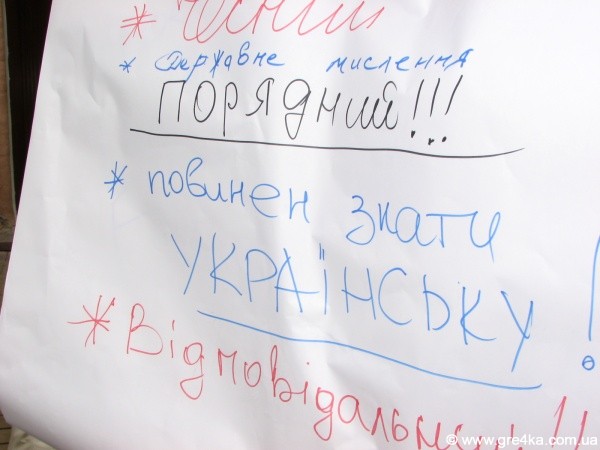 * Чесний
* Державне мислення
ПОРЯДНИЙ!!!
* повинен знати
УКРАЇНСЬКУ!
* Відповідальний!!
© www.gre4ka.com.ua